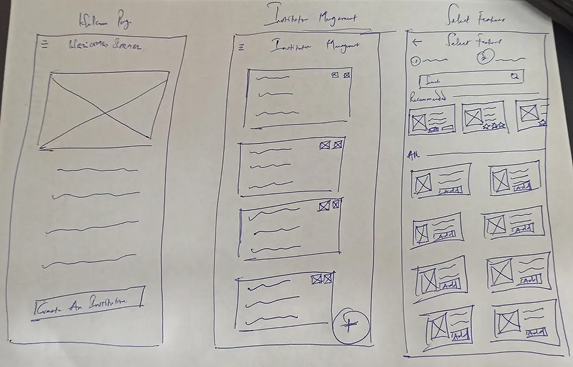 Welcome Page
☰ Welcome Screen
Create An Institution
Institution Management
☰ Institution Management
+
Select Features
← Select Features
1
2
Search
Recommended
All
Add
Add
Add
Add
Add
Add
Add
Add